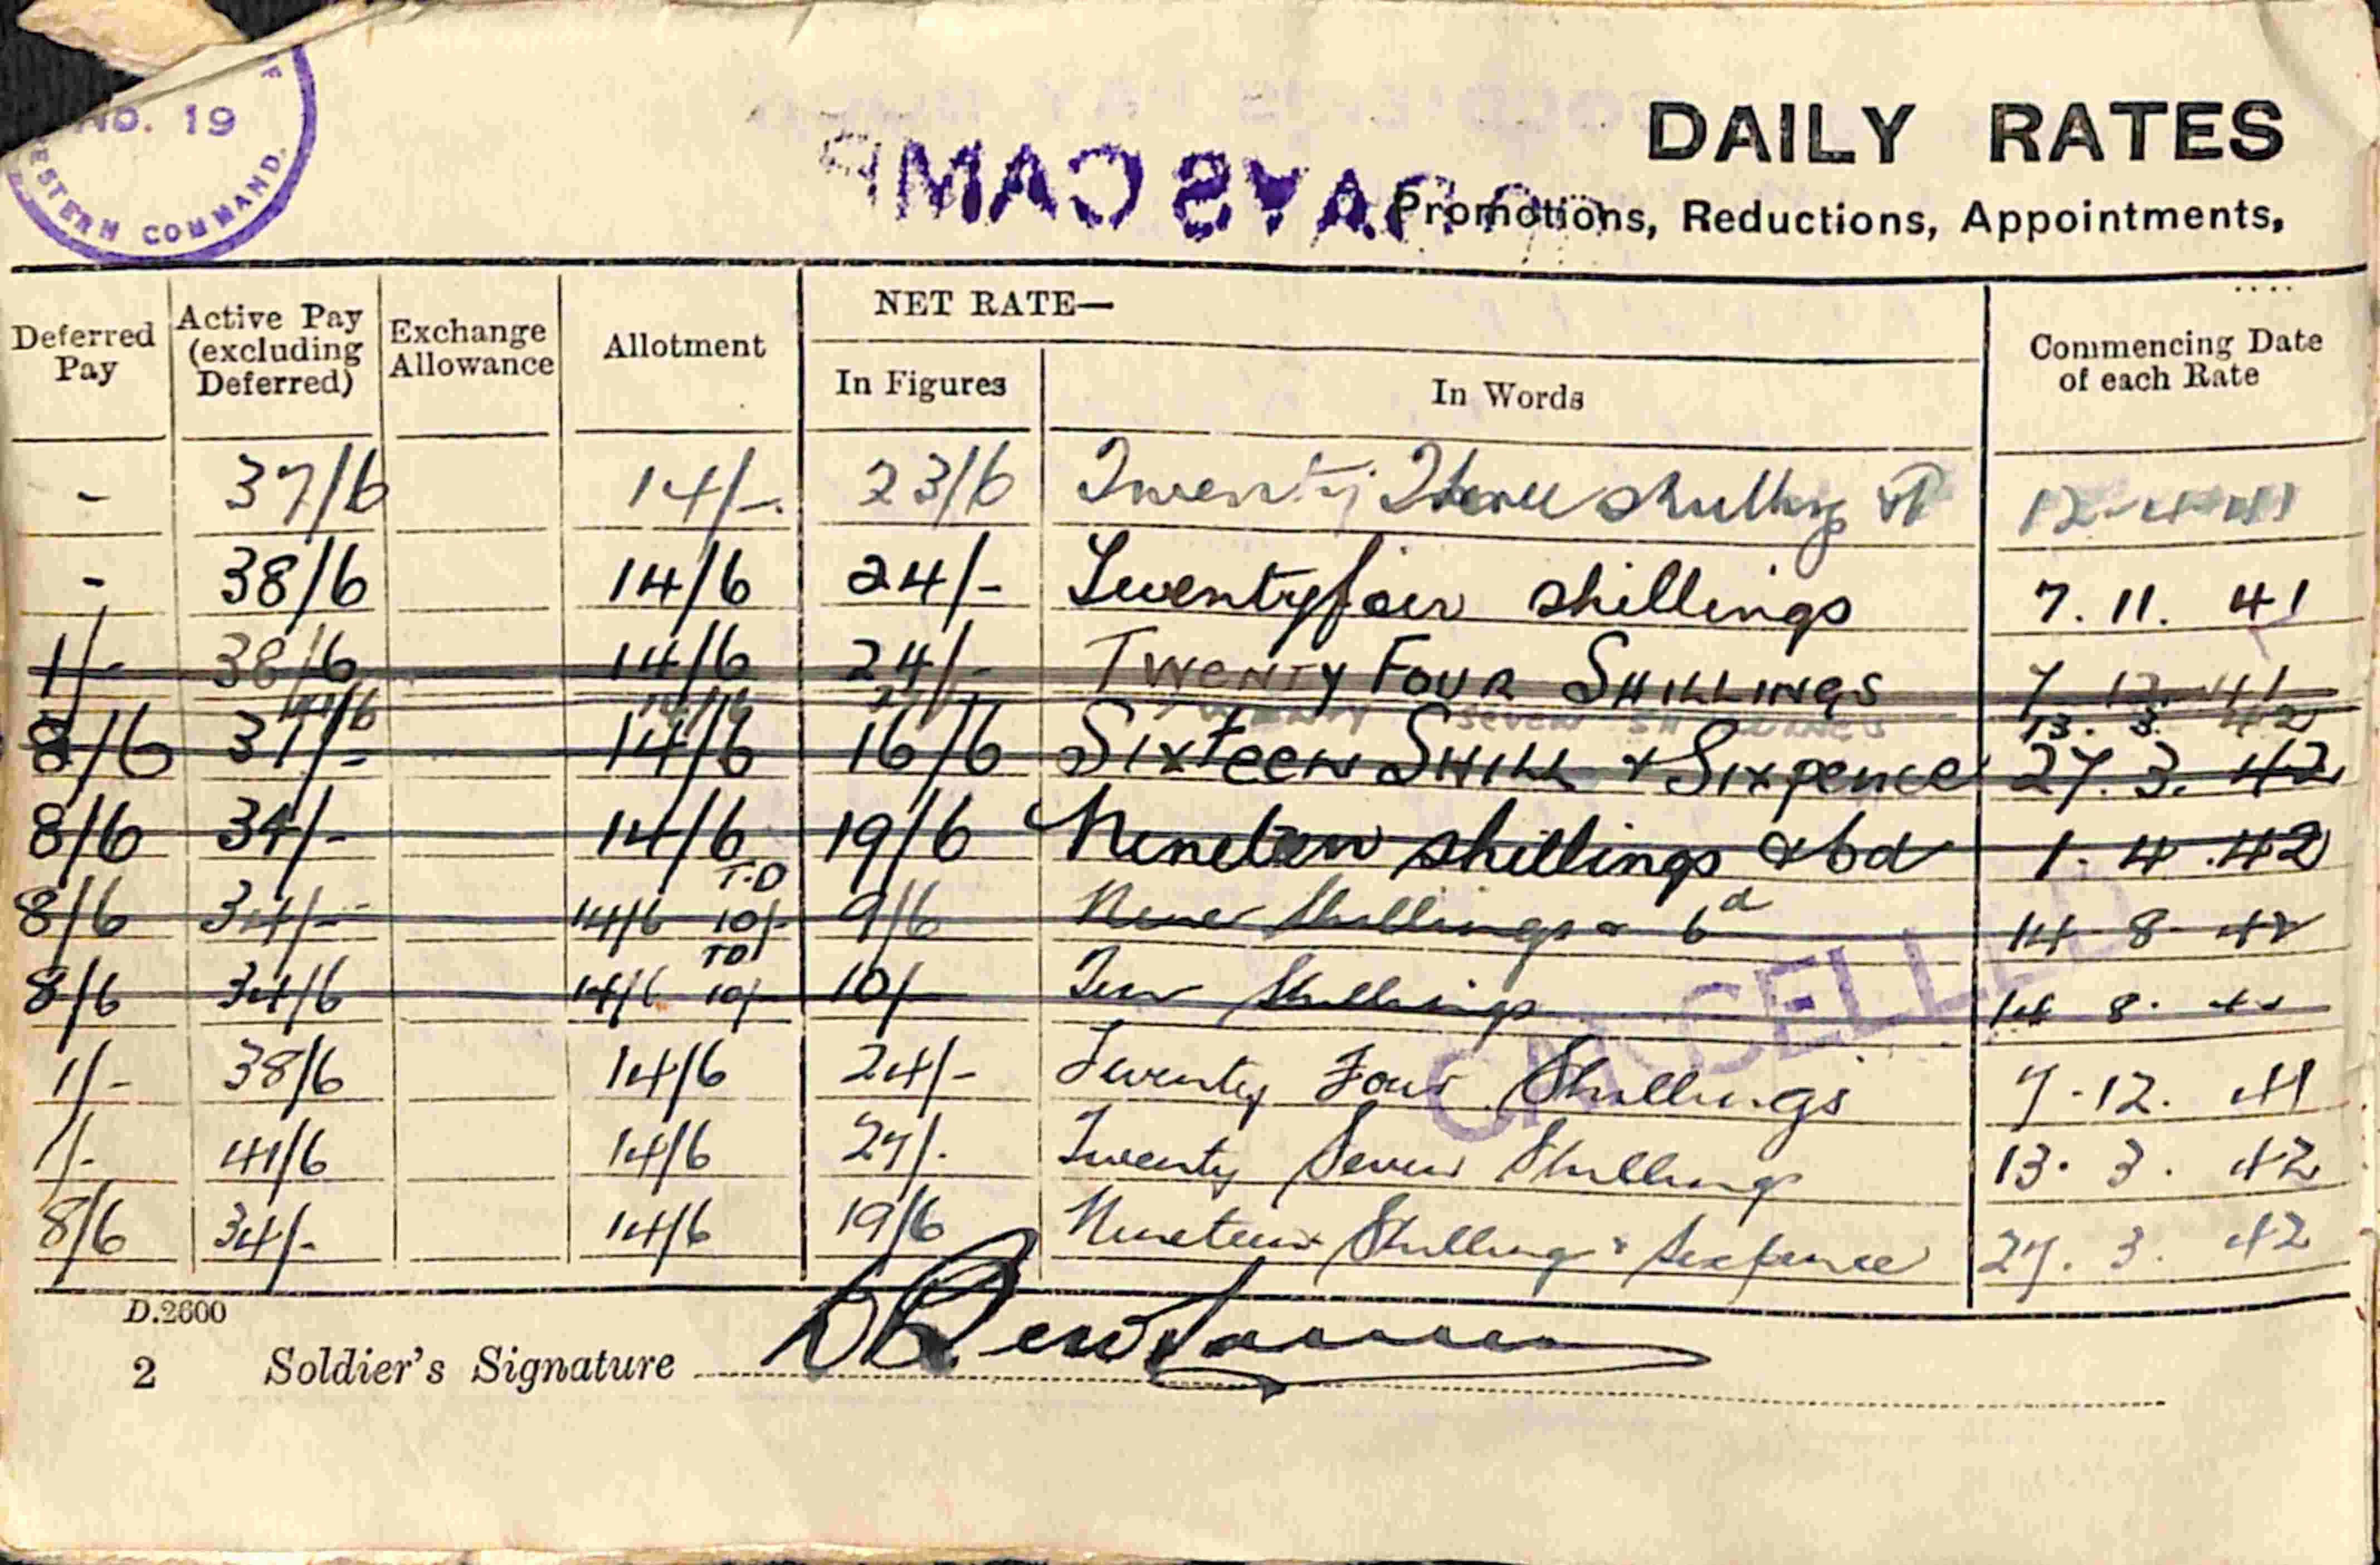 NO. 19
ESTERN COMMAND.
DAILY RATES
Promotions, Reductions, Appointments,
Deferred Pay
Active Pay (excluding Deferred)
Exchange Allowance
Allotment
NET RATE—
In Figures
In Words
Commencing Date of each Rate
- 37/6 14/- 23/6 Twenty Three shillings 12-4-41
- 38/6 14/6 24/- Twentyfour shillings 7. 11. 41
1/- 38/6 14/6 24/- TWENTY FOUR SHILLINGS 7 12. 41
TWENTY SEVEN SHILLINGS 13. 3. 42
8/6 31/- 14/6 16/6 Sixteen SHILL & Sixpence 27. 3. 42
8/6 34/- 14/6 19/6 Nineteen shillings & 6d 1. 4. 42
8/6 34/- 14/6 T.D 10/- 9/6 Nine Shillings & 6d 14 8 42
8/6 34/6 14/6 TD 10/- 10/- Ten Shillings 14 8.
CANCELLED
1/- 38/6 14/6 24/- Twenty Four Shillings 7.12. 41
1/- 41/6 14/6 27/- Twenty Seven Shillings 13. 3. 42
8/6 34/- 14/6 19/6 Nineteen Shillings & Sixpence 27. 3. 42
D.2600
2 Soldier's Signature